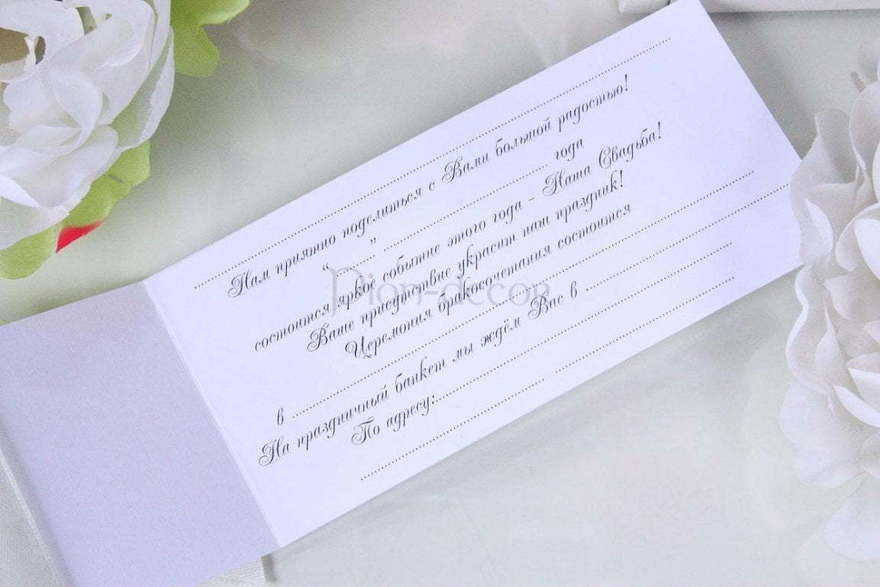 Нам приятно поделиться с Вами большой радостью!
"......" ................................ года
состоится яркое событие этого года - Наша Свадьба!
Ваше присутствие украсит наш праздник!
Церемония бракосочетания состоится
в
На праздничный банкет мы ждём Вас в
По адресу:
Pion-decor